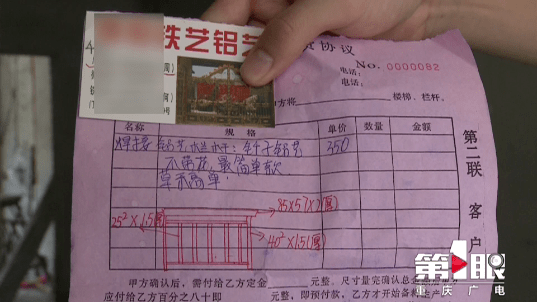 铁艺铝艺
货协议
No. 0000082
电话:
电话:
方将 楼梯、栏杆。
名称 规格 单价 数量 金额
焊接 铝艺栏杆: 350
不带花,最简单款
85×5(×2厚)
25²×1.5厚
40²×1.5(厚)
第二联
客户
甲方确认后,需付给乙方定金 元整,尺寸量完确认总
应付给乙方百分之八十即 元整,即预付款,乙方才开始备料生产
第1眼
重庆广电